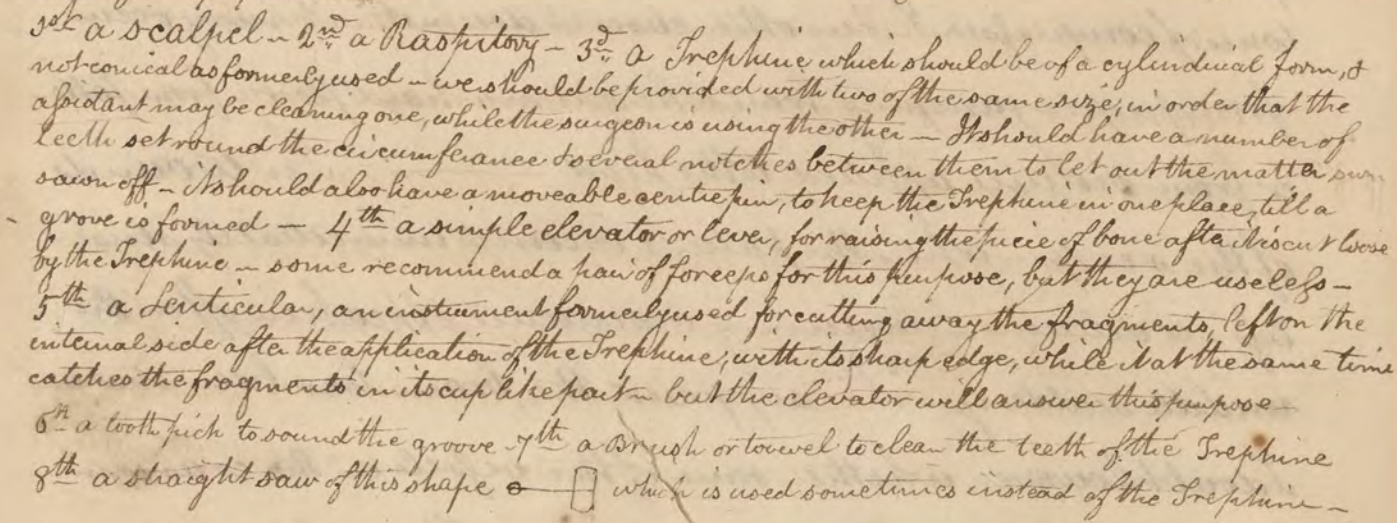 1st a scalpel – 2nd a Raspitory – 3d a Trephine which should be of a cylindical form, &
not conical as formerly used – we should be provided with two of the same size, in order that the
assistant may be cleaning one, while the surgeon is using the other – It should have a number of
teeth set round the circumferance & several notches between them to let out the matter
sawn off – It should also have a moveable centre pin, to keep the Trephine in one place, till a
grove is formed – 4th a simple elevator or lever, for raising the piece of bone after it is cut loose
by the Trephine – some recommend a pair of forceps for this purpose, but they are useless –
5th a Lenticular, an instrument formerly used for cutting away the fragments, left on the
internal side after the application of the Trephine, with its sharp edge, while it at the same time
catches the fragments in its cup like part – but the elevator will answer this purpose –
6th a tooth pick to sound the groove – 7th a Brush or towel to clean the teeth of the Trephine
8th a straight saw of this shape which is used sometimes instead of the Trephine –